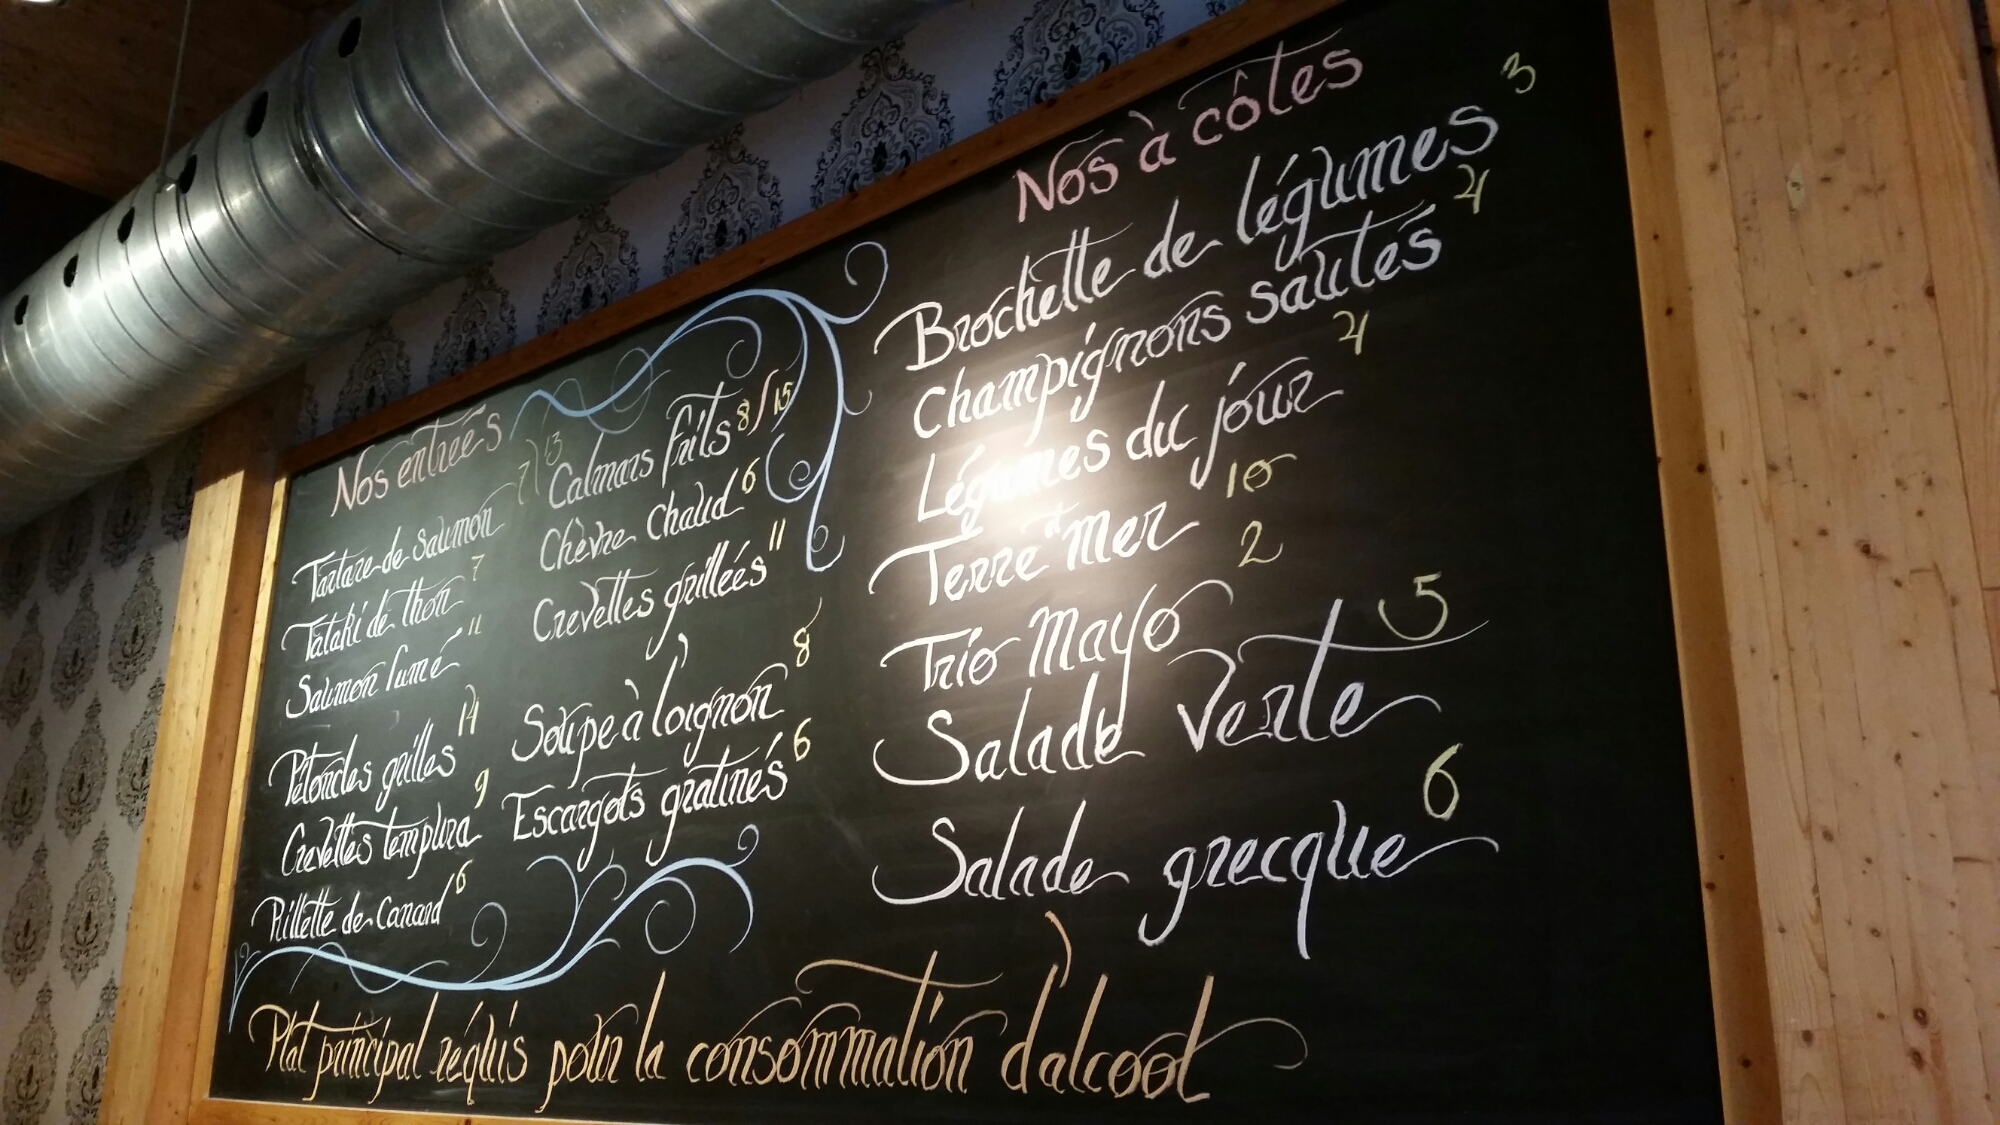 Nos entrées
Tartare de saumon 7/13
Tataki de thon 7
Saumon fumé 11
Pétoncles grilles 14
Crevettes tempura 9
Rillette de Canard 6
Calmars frits 8/15
Chèvre Chaud 6
Crevettes grillées 11
Soupe à l'oignon 8
Escargots gratinés 6
Nos à côtes
Brochette de légumes 3
Champignons sautés 4
Légumes du jour 4
Terre et mer 10
Trio Mayo 2
Salade verte 5
Salade grecque 6
Plat principal réquis pour la consommation d'alcool